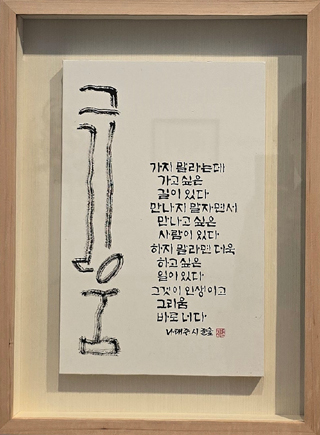 그리움
가지 말라는데
가고 싶은
길이 있다
만나지 말자면서
만나고 싶은
사람이 있다
하지 말라면 더욱
하고 싶은
일이 있다
그것이 인생이고
그리움
바로 너다
나태주 시